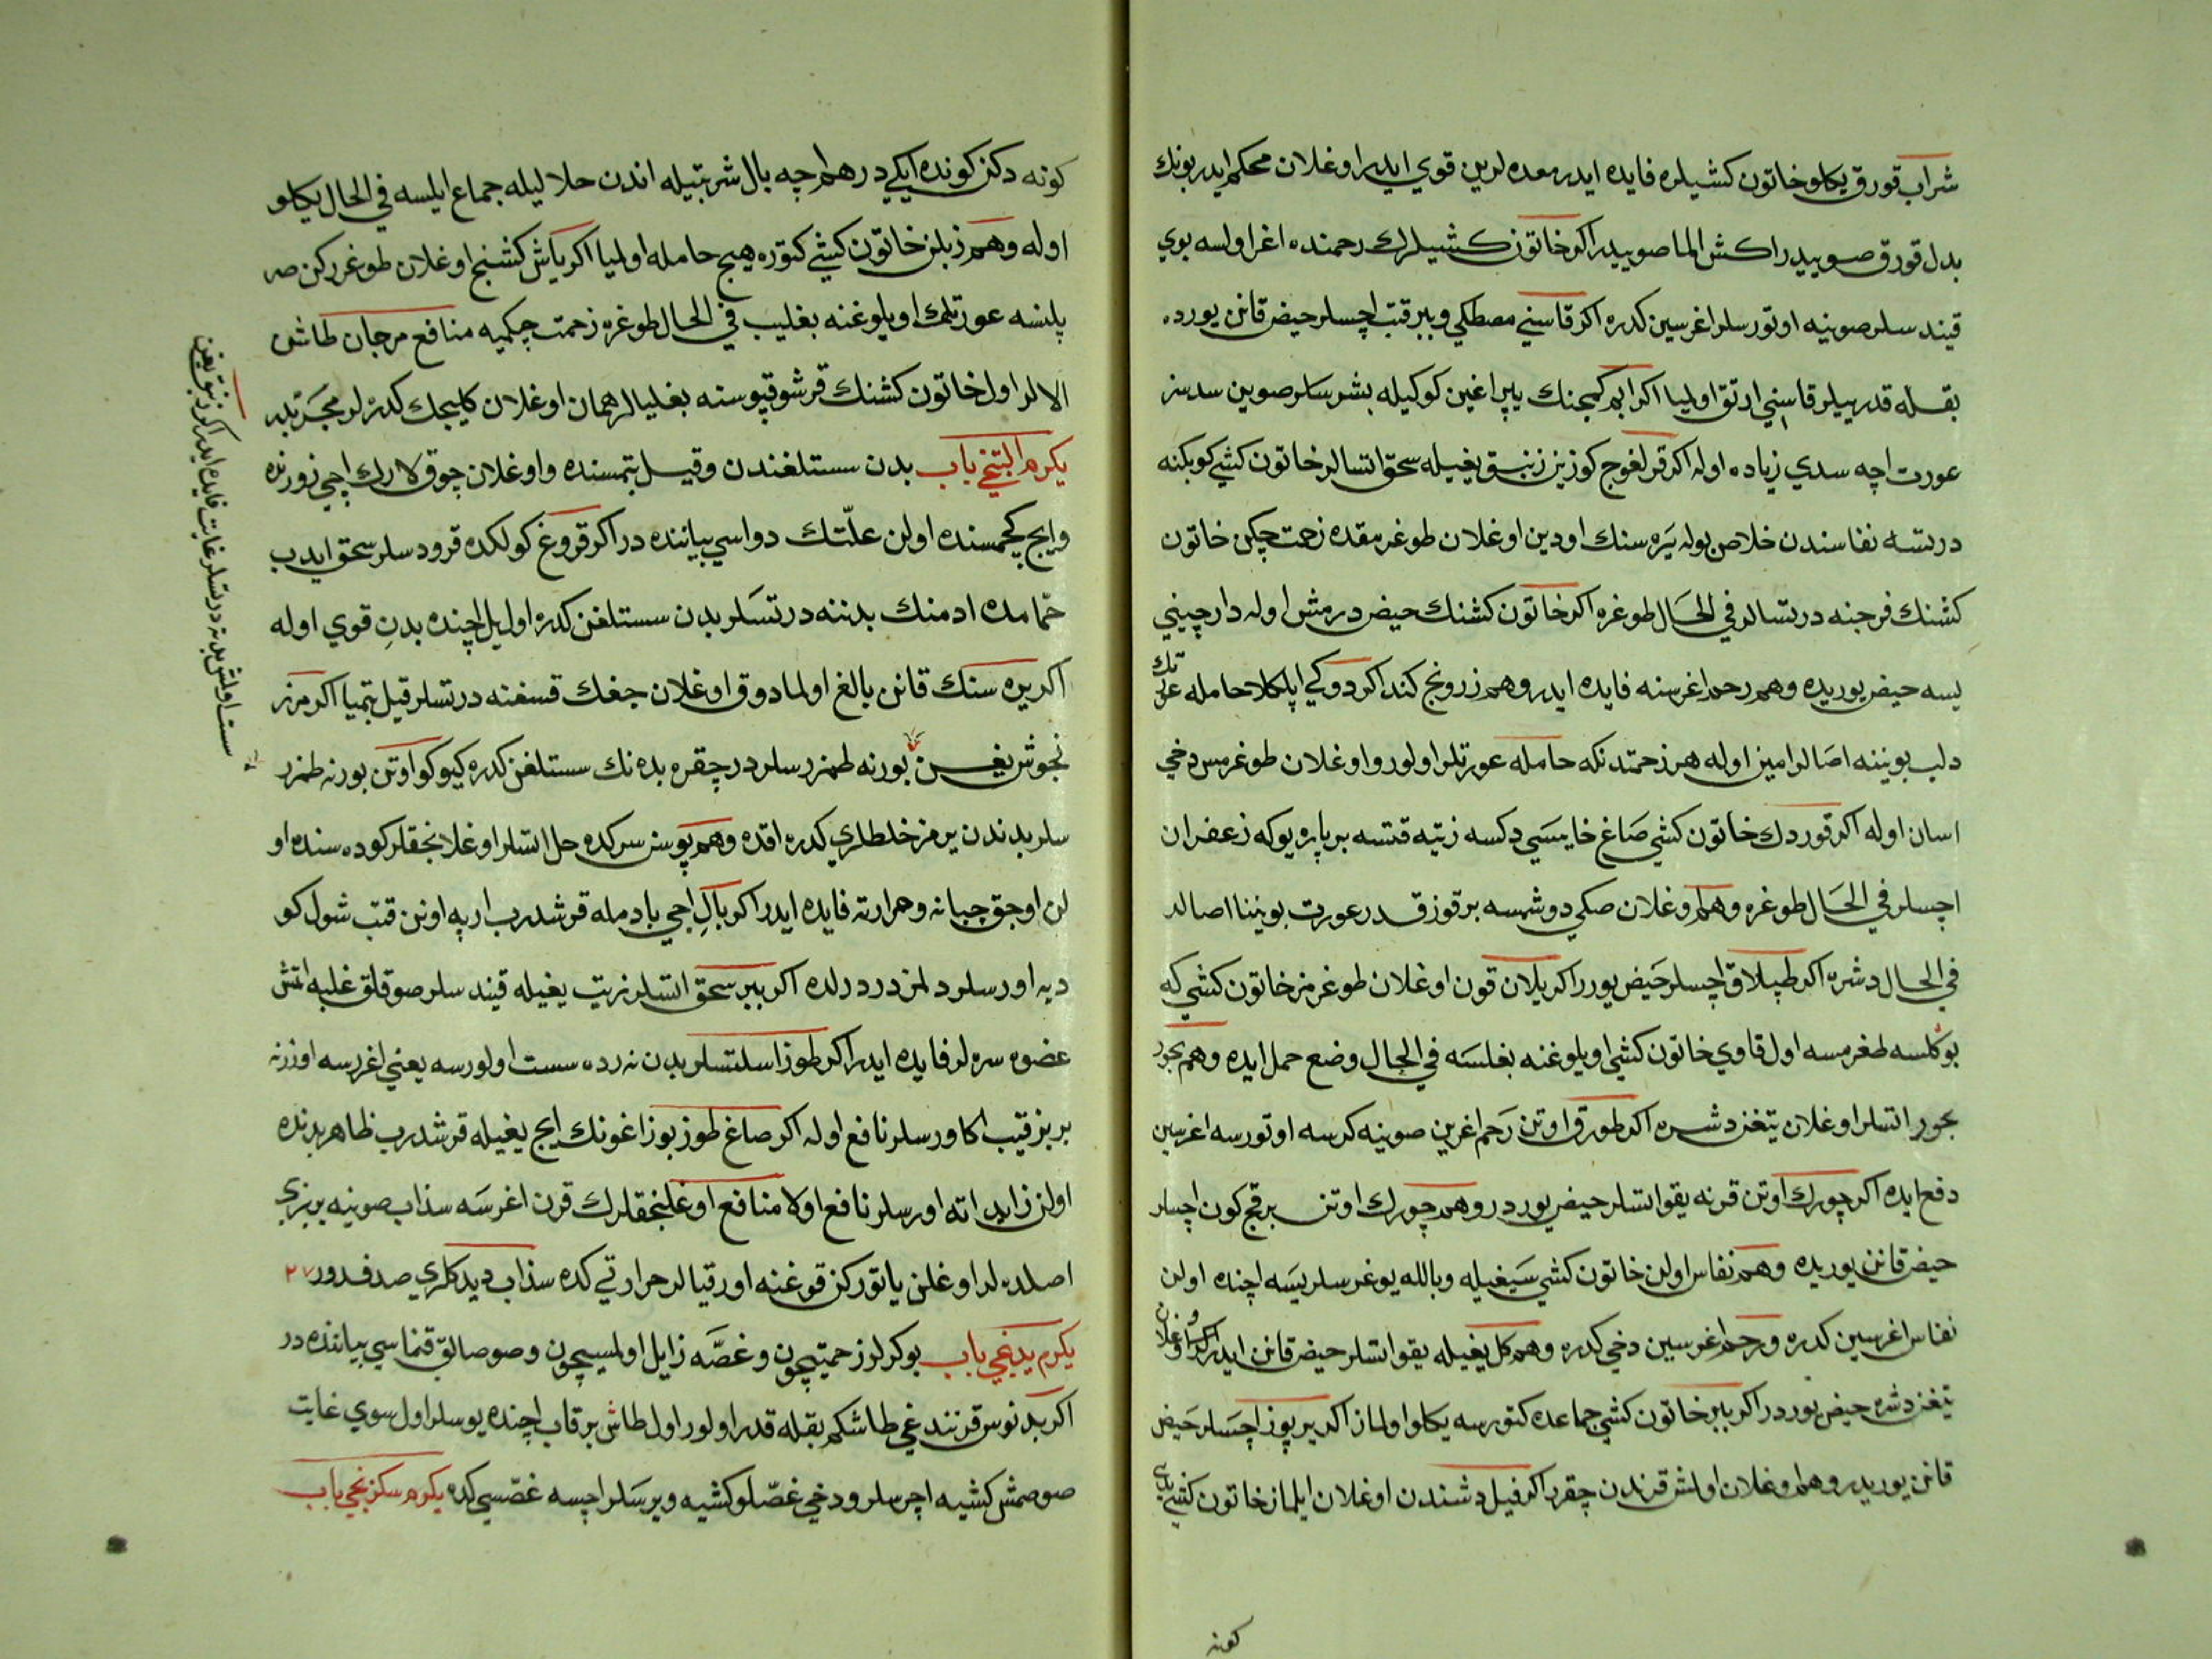 شراب قورق يكلو خاتون كشيلره فايده ايدر معده لرين قوي ايدر اوغلان محكم ايدر بونك
بدل قورق صوييدر اكش الما صوييدر اكر خاتون كشيلرك رحمنده اغر اولسه بوي
قيند سلر صوينه اوتور سلر اغرسين كدره اكر قاسني مصطكي و بير قتب اچسلر حيض قانن يورده
بقله قدر ييلر قاسني ارتق اوليا اكر ابم كمجنك يپراغين كوكيله بشر سلر صوين سدسز
عورت اچه سدي زياده اوله اكر قرلغوج كوزين زنبق يغيله سحق اتسالر خاتون كشي كوبكنه
درتسه نفاسندن خلاص بوله يره سنك اودين اوغلان طوغرمقده زحمت چكن خاتون
كشنك فرجنه درتسالر في الحال طوغره اكر خاتون كشنك حيض درمش اوله دارچيني
يسه حيض يوريده وهم رحم اغرسنه فايده ايدر وهم زرونج كند اكر دوكي ايلكلا حامله عورتك
دلب بويننه اصالر امين اوله هر زحمتدنكه حامله عورتلر اولور و اوغلان طوغرمس دخي
اسان اوله اكر قوردك خاتون كشي صاغ خايسي دكسه زيته قتسه بر پاره يوكه زعفران
اچسلر في الحال طوغره وهم اوغلان صكي دوشسه برقوز قدر عورت بويننا اصالر
في الحال دشره اكر طپلاق اچسلر حيض يورر اكر يلان قون اوغلان طوغرمز خاتون كشي كه
بوكلسه طغرمسه اول قاوي خاتون كشي اويلوغنه بغلسه في الحال وضع حمل ايده وهم بخور
بخور اتسلر اوغلان يتغن دشره اكر طورق اوتن رحم اغرين صوينه كرسه اوتورسه اغرسين
دفع ايده اكر چورك اوتن قرنه يقو اتسلر حيض يوردر وهم چورك اوتن برقچ كون اچسلر
حيض قانن يوريده وهم نفاس اولن خاتون كشي سيغيله و بالله يوغرسلر يسه اچنده اولن
نفاس اغرسين كدره و رحم اغرسين دخي كدره وهم كل يغيله يقو اتسلر حيض قانن ايدر اكر اوغلان
يتغن دشره حيض يوردر اكر بير خاتون كشي جماعده كتورسه يكلو اولماز اكر يرپوز اچسلر حيض
قانن يوريدر وهم اوغلان اولش قرندن چقرر اكر فيل دشندن اوغلان ايلماز خاتون كشي يدي
كونه
كونه دكن كونده ايكي درهم اچه بال شربتيله اندن حلاليله جماع ايلسه في الحال يكلو
اوله وهم زبلن خاتون كشي كتوره هيچ حامله اولميا اكر ياش كشنيج اوغلان طوغرركن صر
پلسه عورتك اويلوغنه بغليب في الحال طوغره زحمت چكميه منافع مرجان طاشن
الالر اول خاتون كشنك قرشو قپوسنه بغليالر همان اوغلان كليجك كدرلر مجربدر
يكرم التنجي باب بدن سستلغندن و قيل بتمسنده و اوغلان چوق لارك اچي زورنده
و ايج كچمسنده اولن علّتك دواسي بياننده در اكر قروغ كولكده قرودسلر سحق ايدب
حمامده ادمنك بدننه درتسلر بدن سستلغن كدره اول يل اچنده بدن قوي اوله
اكر يره سنك قانن بالغ اولمادوق اوغلان جغك قسغنه درتسلر قيل بتميا اكر مرز
نجوش يغين بورنه طمزرسلر درچقره بده نك سستلغن كدره كيوكو اوتن بورنه طمزر
سلر بدندن يرمز خلطلري كدره اقده وهم پوسن سركده حل اتسلر اوغلانجقلر كوده سنده او
لن اوجق چبانه و حرارته فايده ايدر اكر بال اجي بادمله قرشدرب ارپه اونن قتب شول كو
ديه اورسلر دلمز درد دلده اكر بير سحق اتسلر زيت يغيله قيند سلر صوقلق غلبه اتمش
عضوه سره لر فايده ايدر اكر طوز اسلتسلر بدن نرده سست اولورسه يعني اغررسه اوزرنه
بربز قيب اكا ورسلر نافع اوله اكر صاغ طوز بوزاغونك ايج يغيله قرشدرب ظاهر بدنده
اولن زايد اته اورسلر نافع اولا منافع اوغلنجقلرك قرن اغرسه سذاب صوينه بربزي
اصلده لر اوغلن ياتوركن قوغنه اورقيالر حرارتي كده سذاب ديدكلري صدفدور ٢٧
يكرم يدنجي باب بوكرلو زحمتيچون و غصّه زايل اولميسيچون و صوصالق قنماسي بياننده در
اكر بدنوس قرننده غي طاشكم بقله قدر اولور اول طاش برقاب اچنده يوسلر اول سوي غايت
صوصمش كشيه اچرسلر و دخي غصّلو كشيه ويرسلر اچسه غصّسي كده يكرم سكزنجي باب
سست اولمش بدنه درتسلر غايت فايده ايدر اكر زنبق يغين